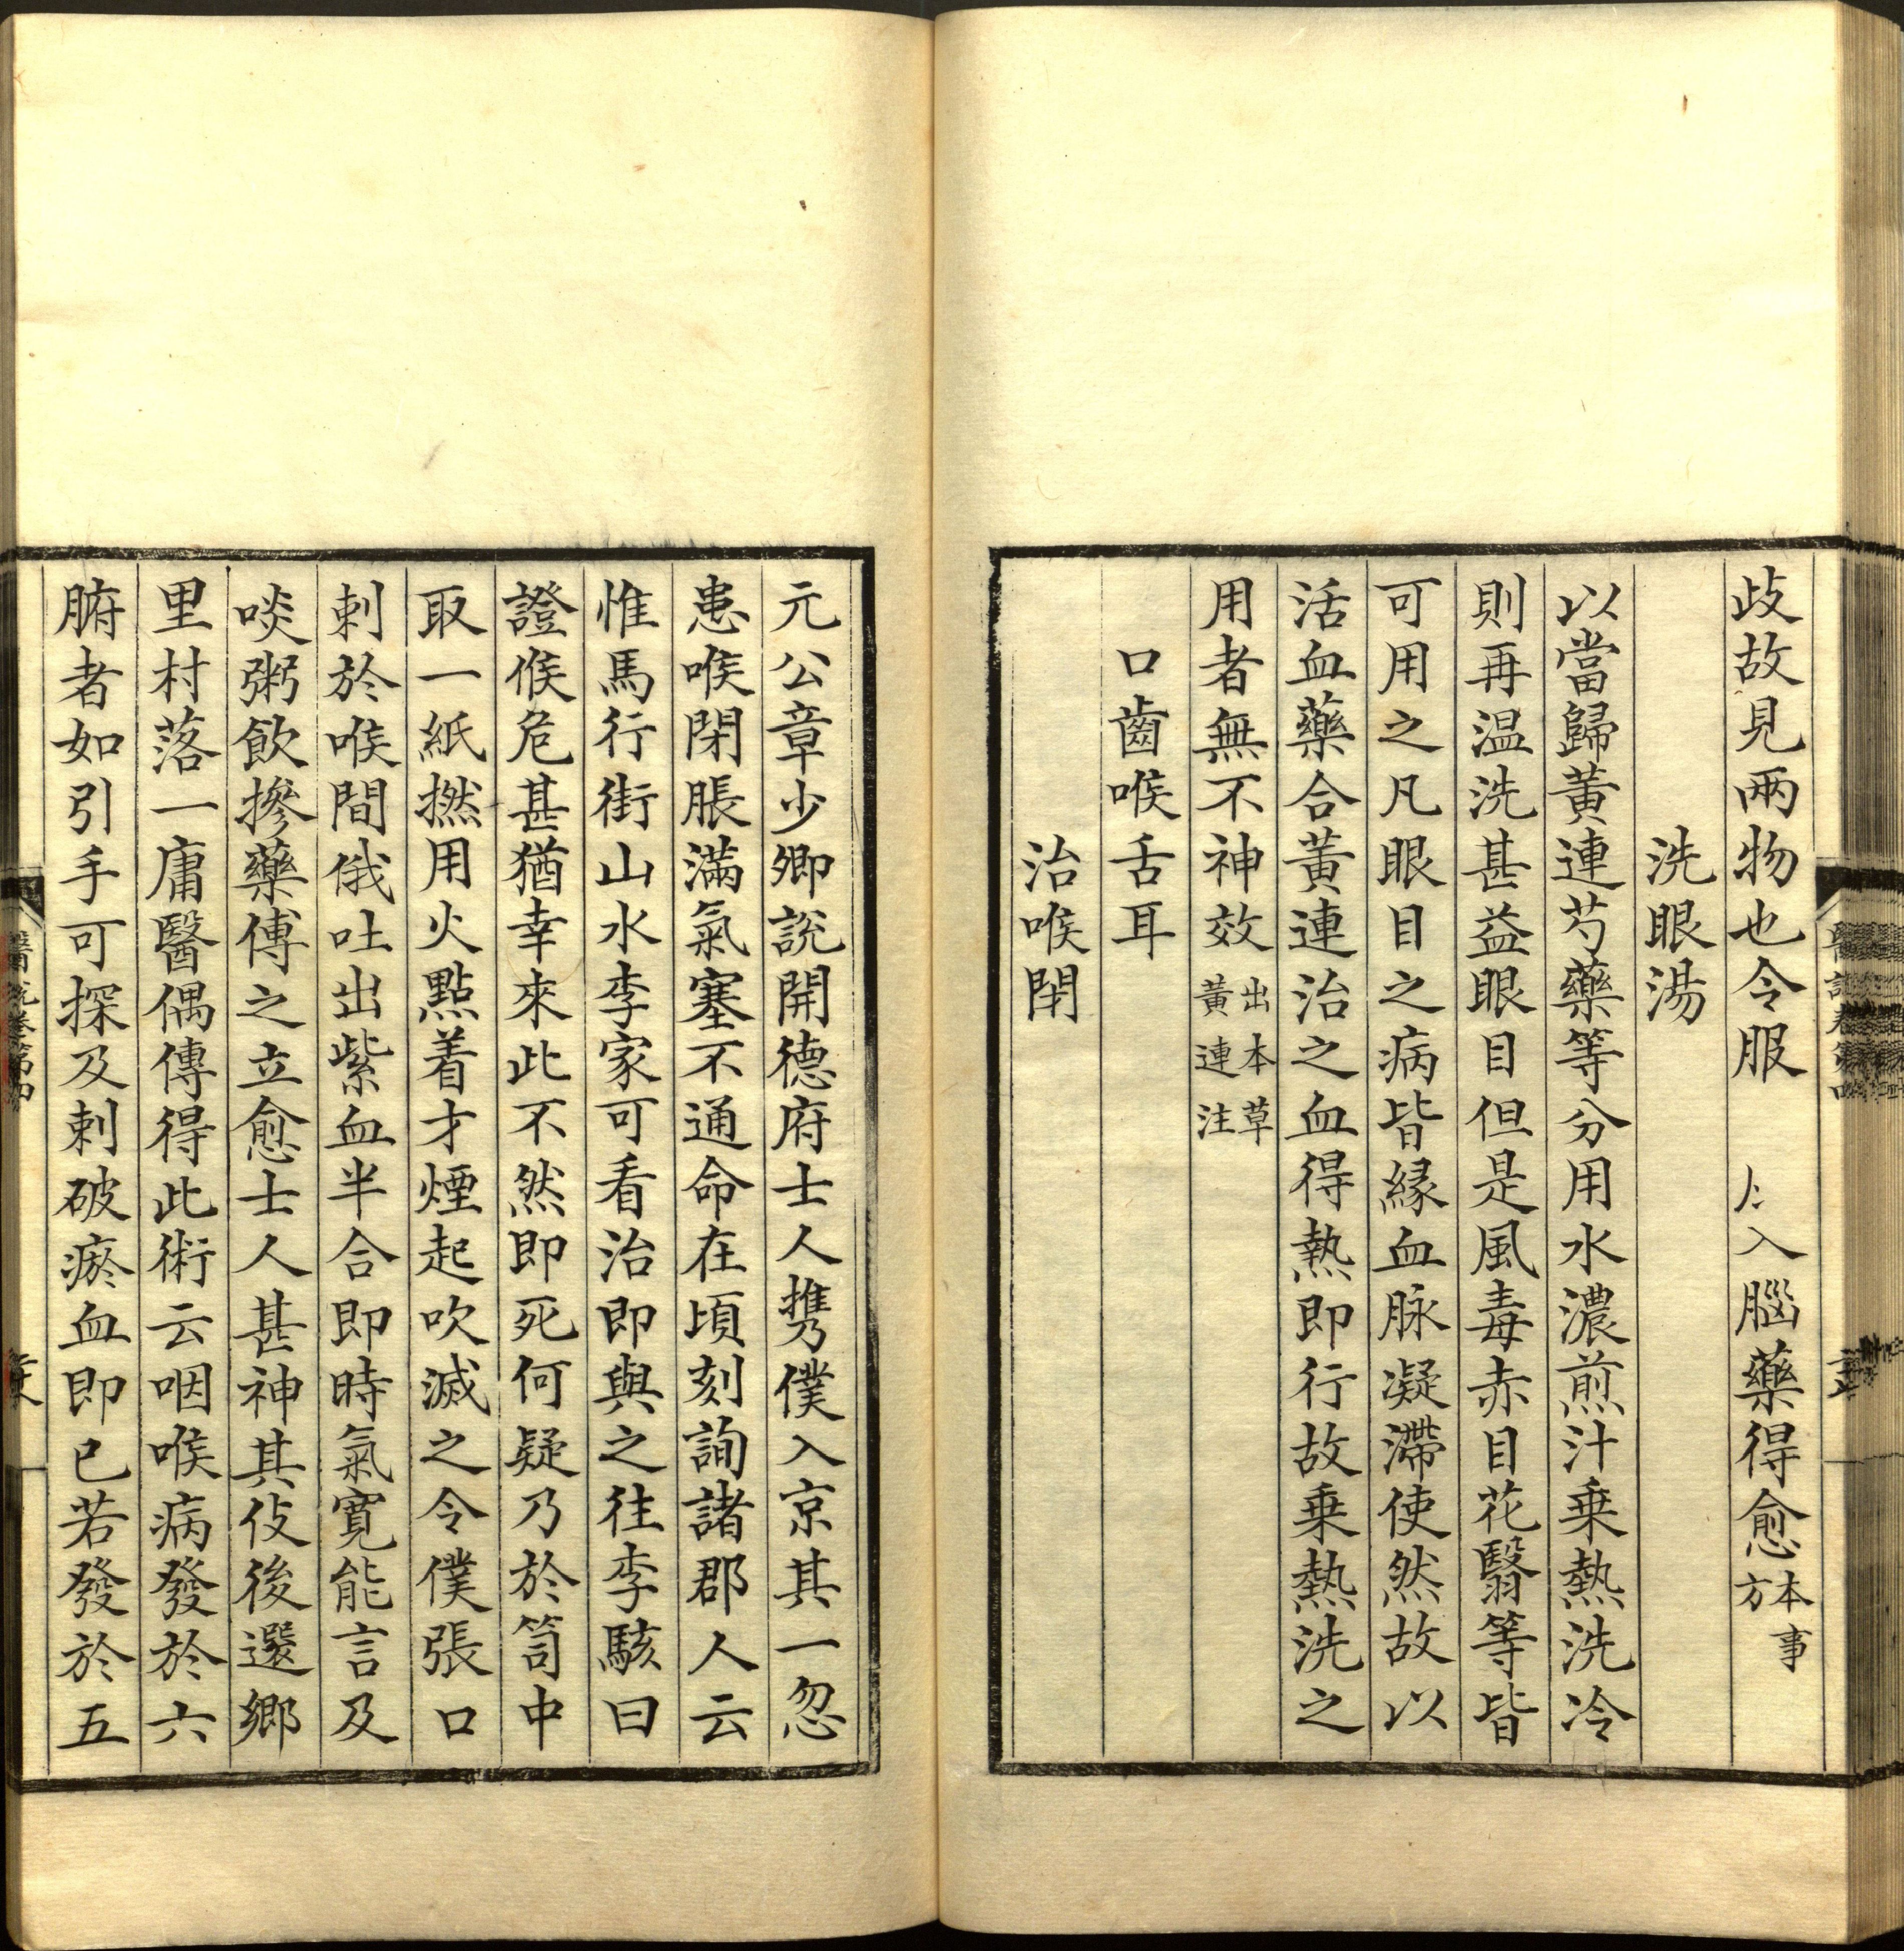 歧故見兩物也令服入腦藥得愈本事方
洗眼湯
以當歸黃連芍藥等分用水濃煎汁乗熱洗冷
則再温洗甚益眼目但是風毒赤目花翳等皆
可用之凡眼目之病皆縁血脉凝滯使然故以
活血藥合黃連治之血得熱即行故乗熱洗之
用者無不神效出本草黃連注
口齒喉舌耳
治喉閉
元公章少卿說開德府士人携僕入京其一忽
患喉閉脹滿氣塞不通命在頃刻詢諸郡人云
惟馬行街山水李家可看治即與之往李駭曰
證候危甚猶幸來此不然即死何疑乃於笥中
取一紙撚用火點着才煙起吹滅之令僕張口
刺於喉間俄吐出紫血半合即時氣寛能言及
啖粥飲摻藥傅之立愈士人甚神其伎後還鄉
里村落一庸醫偶傳得此術云咽喉病發於六
腑者如引手可探及刺破瘀血即已若發於五
醫說卷第四